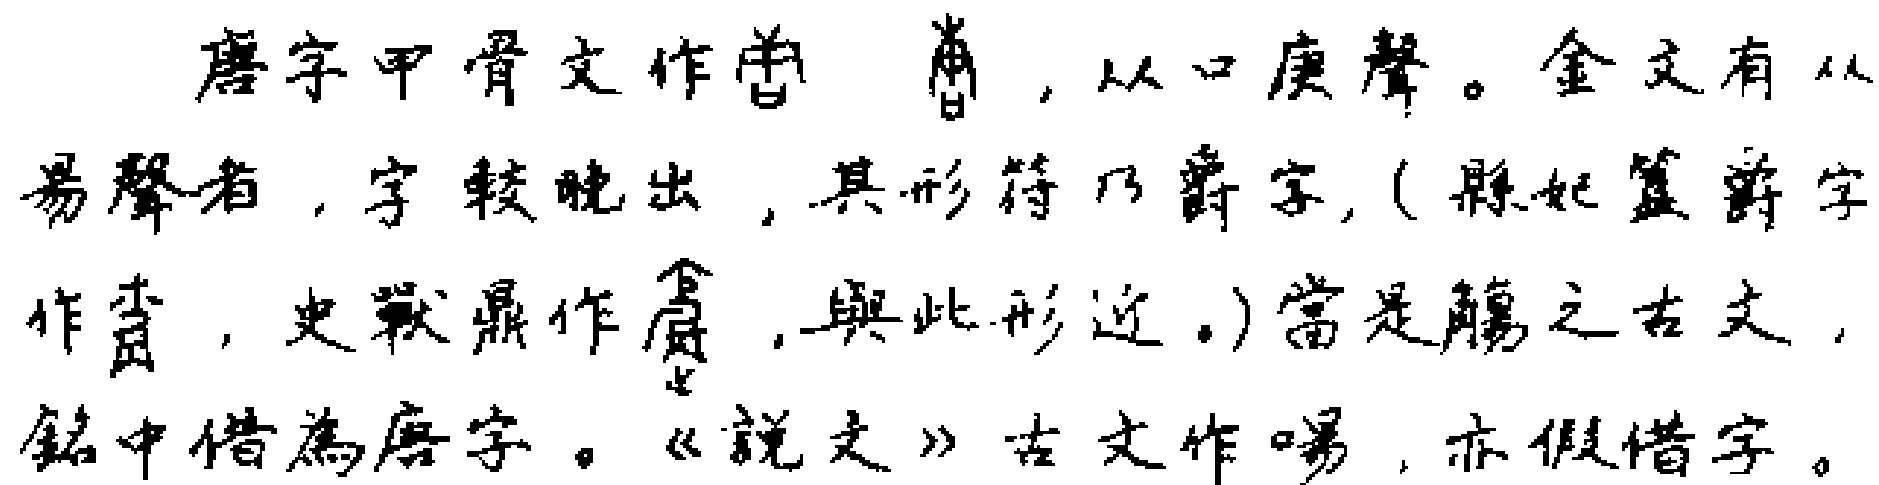 唐字甲骨文作 ，从口庚聲。金文有从
昜聲者，字較晚出，其形符乃爵字，（縣妃簋爵字
作 ，史獸鼎作 ，與此形近。）當是觴之古文，
銘中借為唐字。《說文》古文作啺，亦假借字。